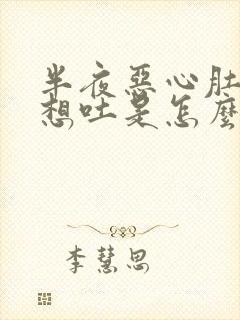 半夜惡心肚
想吐是怎麼
李慧思